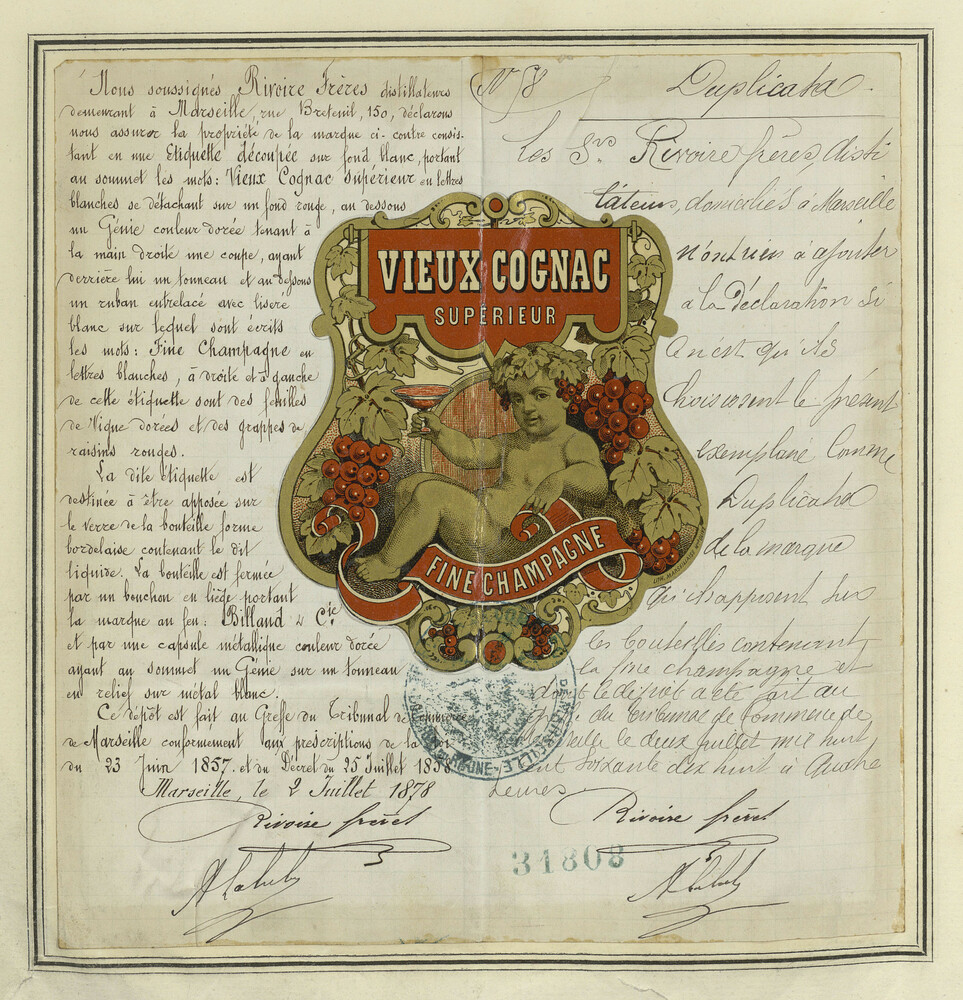 Nous soussignés Rivoire Frères distillateurs
demeurant à Marseille, rue Breteuil, 150, déclarons
nous assurer la propriété de la marque ci-contre consis-
tant en une Etiquette découpée sur fond blanc, portant
au sommet les mots: Vieux Cognac supérieur en lettres
blanches se détachant sur un fond rouge, au dessous
un Génie couleur dorée tenant à
la main droite une coupe, ayant
derrière lui un tonneau et au dessous
un ruban entrelacé avec liseré
blanc sur lequel sont écrits
les mots: Fine Champagne en
lettres blanches, à droite et à gauche
de cette étiquette sont des feuilles
de Vigne dorées et des grappes de
raisins rouges.
La dite étiquette est
destinée à être apposée sur
le verre de la bouteille forme
bordelaise contenant le dit
liquide. La bouteille est fermée
par un bouchon en liège portant
la marque au feu: Billaud & Cie
et par une capsule métallique couleur dorée
ayant au sommet un Génie sur un tonneau
en relief sur métal blanc.
Ce dépôt est fait au Greffe du Tribunal de Commerce
de Marseille conformement aux prescriptions de la Loi
du 23 Juin 1857. et du Décret du 25 Juillet 1858
Marseille, le 2 Juillet 1878
Rivoire frères
VIEUX COGNAC
SUPÉRIEUR
FINE CHAMPAGNE
N° 58
Duplicata
Les Srs Rivoire frères, disti
lateurs, domiciliés à Marseille
n'ont rien à ajouter
à la Déclaration si
ce n'est qu'ils
choisissent le présent
exemplaire comme
Duplicata
de la marque
qu'ils apposent sur
les bouteilles contenant
la fine champagne et
dont le dépôt a été fait au
du Tribunal de Commerce de
Marseille le deux juillet mil huit
cent soixante dix huit à quatre
heures.
Rivoire frères
31808